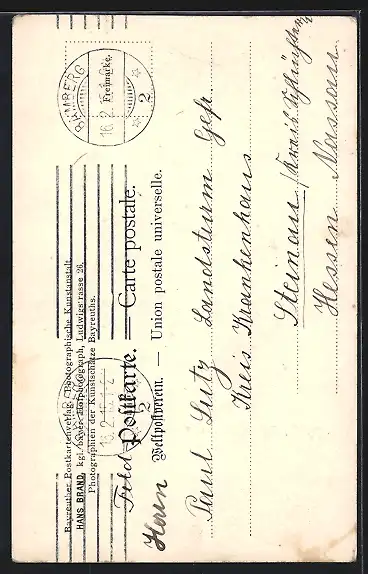 Bayreuther Postkartenverlag, Photographische Kunstanstalt
HANS BRAND, kgl. bayer. Hofphotograph, Ludwigstrasse 26.
Photographien der Kunstschätze Bayreuths.
BAMBERG
16.2.15
2
Freimarke.
16.2.15
2
Feld Postkarte. — Carte postale.
Weltpostverein. — Union postale universelle.
Herrn
Paul Lutz Landsturm Gefr.
Kreis Krankenhaus
Steinau / Kreis Schlüchtern
Hessen Nassau